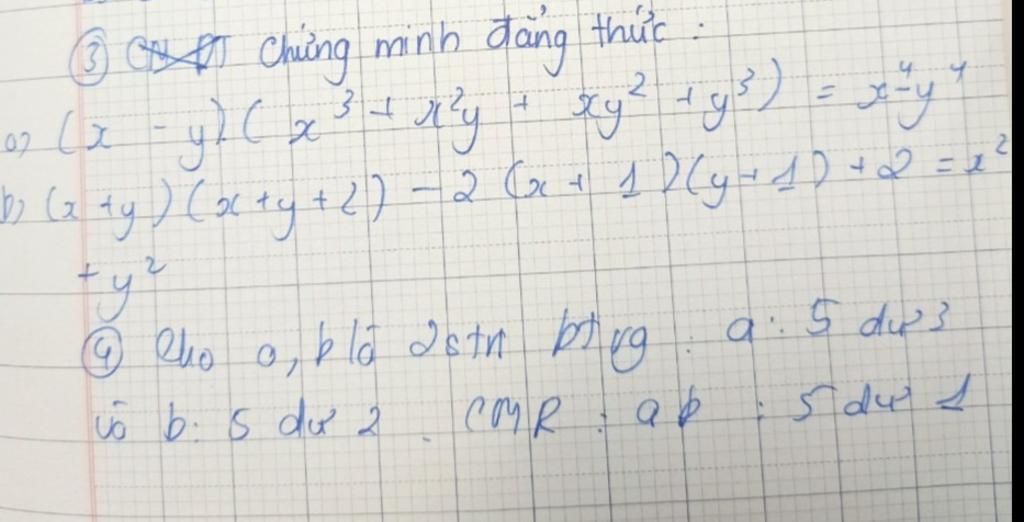 ③ Chứng minh đẳng thức :
a) (x - y)(x³ + x²y + xy² + y³) = x⁴-y⁴
b) (x + y)(x+y+2) - 2(x + 1)(y+1) + 2 = x²
+ y²
④ Cho a, b là 2stn : a : 5 dư 3
và b : 5 dư 2 . CMR : ab : 5 dư 1